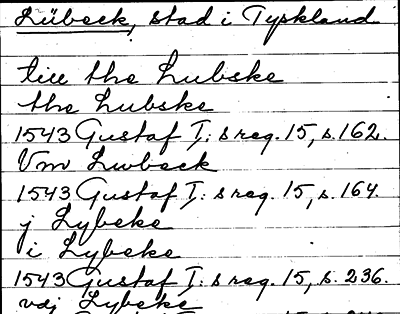 Lübeck, stad i Tyskland
till the Lubske
the Lubske
1543 Gustaf I:s reg. 15, s. 162.
Vm Lwbeck
1543 Gustaf I:s reg. 15, s. 164.
j Lybeke
i Lybeke
1543 Gustaf I:s reg. 15, s. 236.
vdj Lybeke